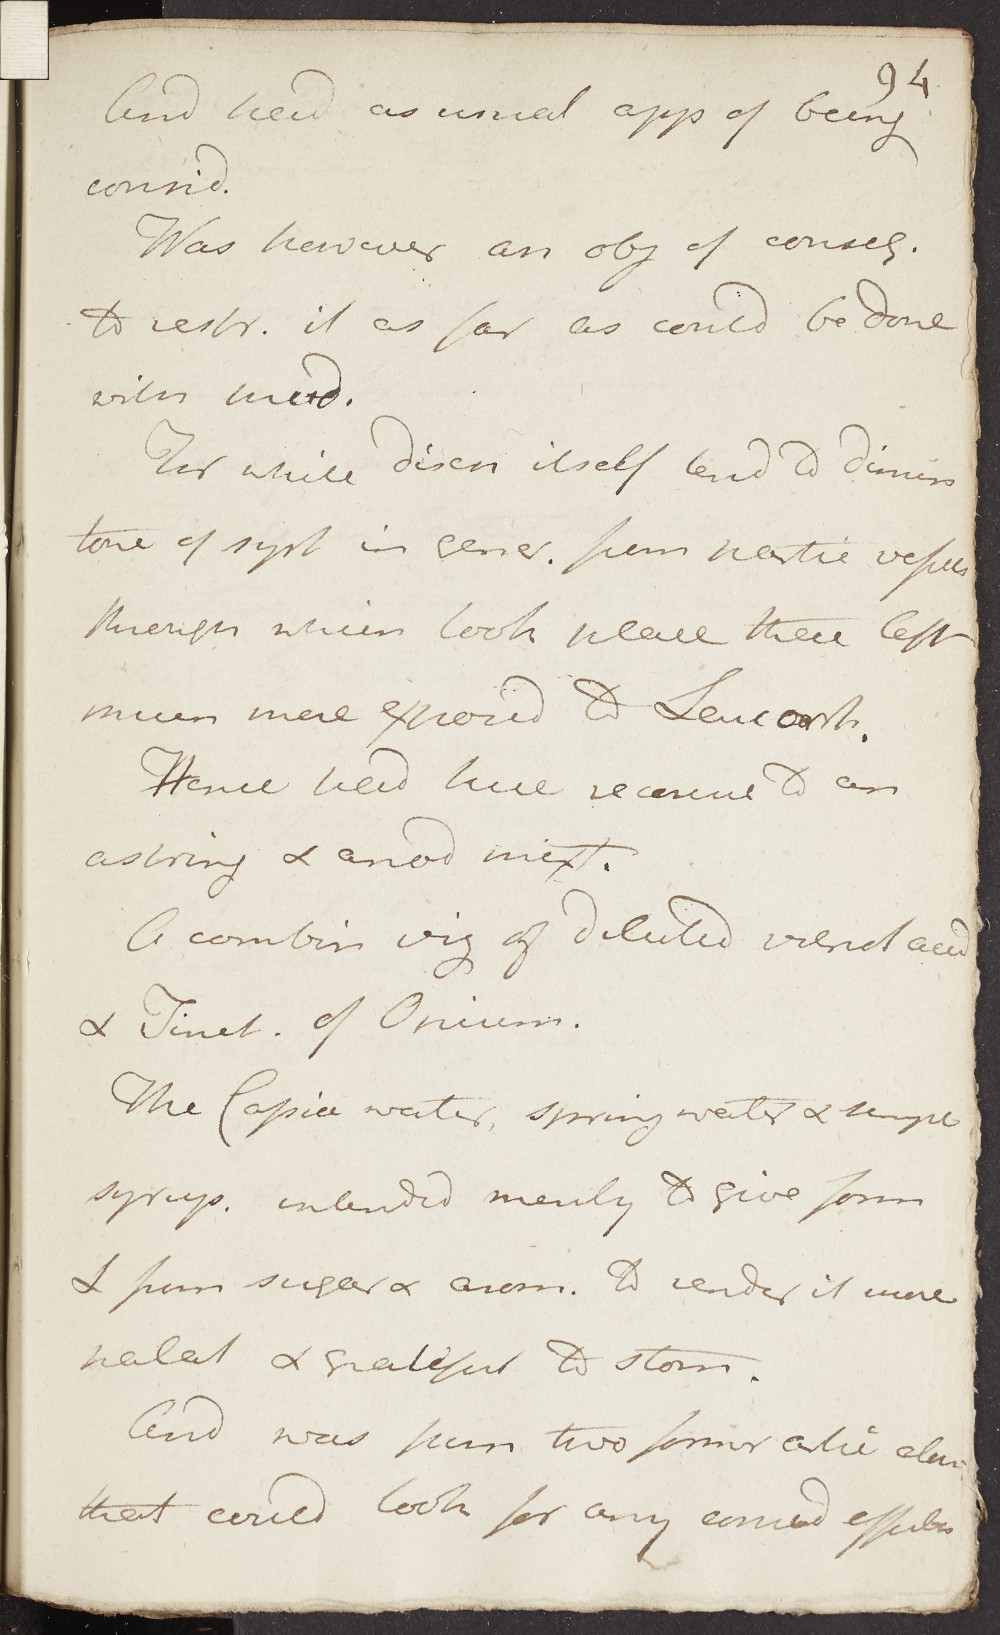 94
And had as usual app of being
consid.
Was however an obj of conseq.
to restr. it as far as could be done
with
For while disch itself tend to dimin
tone of syst in gener. from partic vessels
through which took place there left
much more exposed to Leucorh.
Hence had here recourse to an
astring & anod mixt.
A combin viz of diluted vitriol acid
& Tinct. of Opium.
The Cassia water, spring water & simple
syrup. intended merely to give form
& from sugar & arom. to render it more
palat & grateful to stom.
And was from two former artic alone
that could look for any consid effects